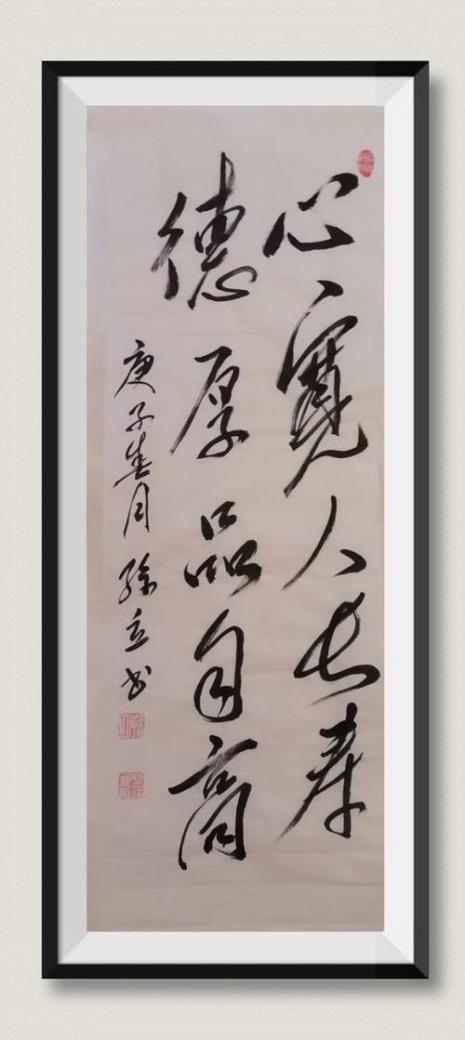 心宽人长寿
德厚品自高
庚子春月 孙立书